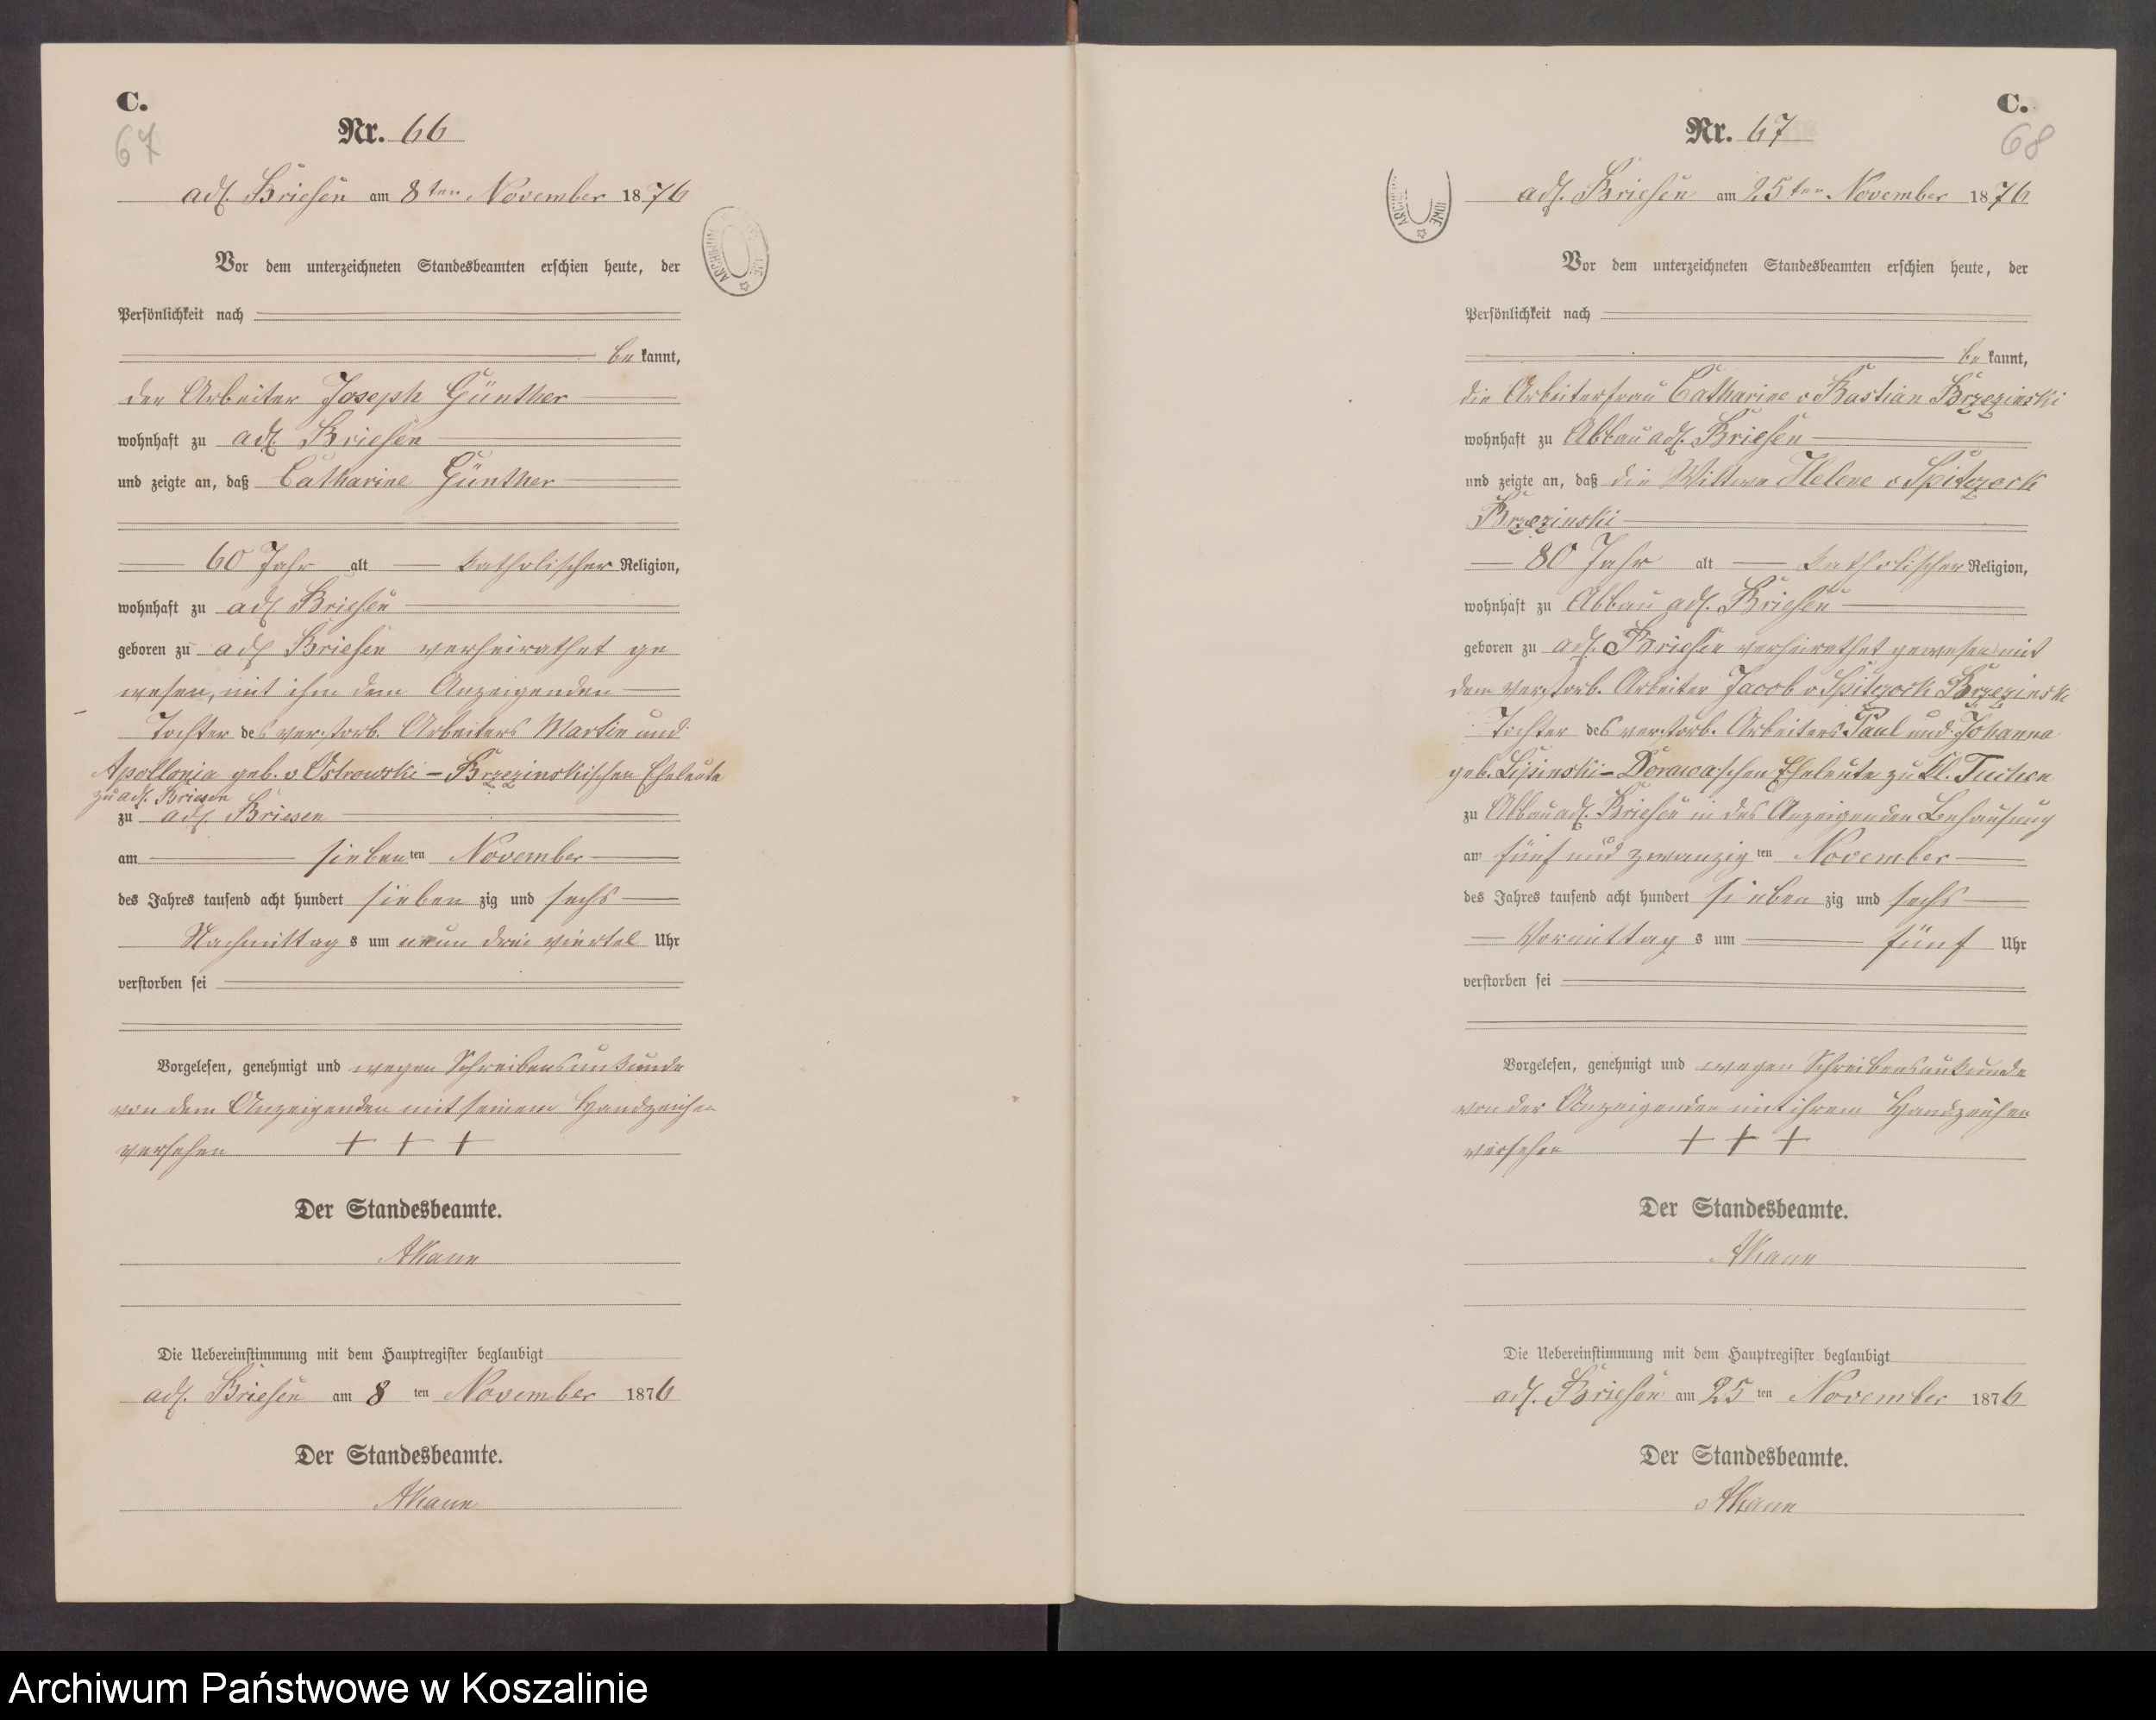 C.
67
Nr. 66
adl. Briesen am 8ten November 1876
Vor dem unterzeichneten Standesbeamten erschien heute, der
Persönlichkeit nach
be kannt,
der Arbeiter Joseph Günther
wohnhaft zu adl. Briesen
und zeigte an, daß Catharine Günther
60 Jahr alt katholischer Religion,
wohnhaft zu adl. Briesen
geboren zu adl. Briesen verheirathet ge
wesen, mit ihm dem Anzeigenden
Tochter des verstorb. Arbeiters Martin und
Apollonia geb. v Ostrowski - Brzezinskischen Eheleute
zu adl. Briesen
zu adl. Briesen
am siebenten November
des Jahres tausend acht hundert sieben zig und sechs
Nachmittags um neun drei viertel Uhr
verstorben sei
Vorgelesen, genehmigt und wegen Schreibensunkunde
von dem Anzeigenden mit seinem Handzeichen
versehen + + +
Der Standesbeamte.
Die Uebereinstimmung mit dem Hauptregister beglaubigt
adl. Briesen am 8 ten November 1876
Der Standesbeamte.
ARCHIWUM
C.
68
Nr. 67
adl. Briesen am 25ten November 1876
Vor dem unterzeichneten Standesbeamten erschien heute, der
Persönlichkeit nach
be kannt,
die Arbeiterfrau Catharine v Bastian Brzezinski
wohnhaft zu Abbau adl. Briesen
und zeigte an, daß die Wittwe Helene v Spitczock
Brzezinski
80 Jahr alt katholischer Religion,
wohnhaft zu Abbau adl. Briesen
geboren zu adl. Briesen verheirathet gewesen mit
dem verstorb. Arbeiter Jacob v Spitczock Brzezinski
Tochter des verstorb. Arbeiters Paul und Johanna
geb. Lipinski - Dorawa'schen Eheleute zu Kl. Tuchen
zu Abbau adl. Briesen in des Anzeigenden Behausung
am fünf und zwanzig ten November
des Jahres tausend acht hundert sieben zig und sechs
Vormittags um fünf Uhr
verstorben sei
Vorgelesen, genehmigt und wegen Schreibensunkunde
von der Anzeigenden mit ihrem Handzeichen
versehen + + +
Der Standesbeamte.
Die Uebereinstimmung mit dem Hauptregister beglaubigt
adl. Briesen am 25 ten November 1876
Der Standesbeamte.
Archiwum Państwowe w Koszalinie